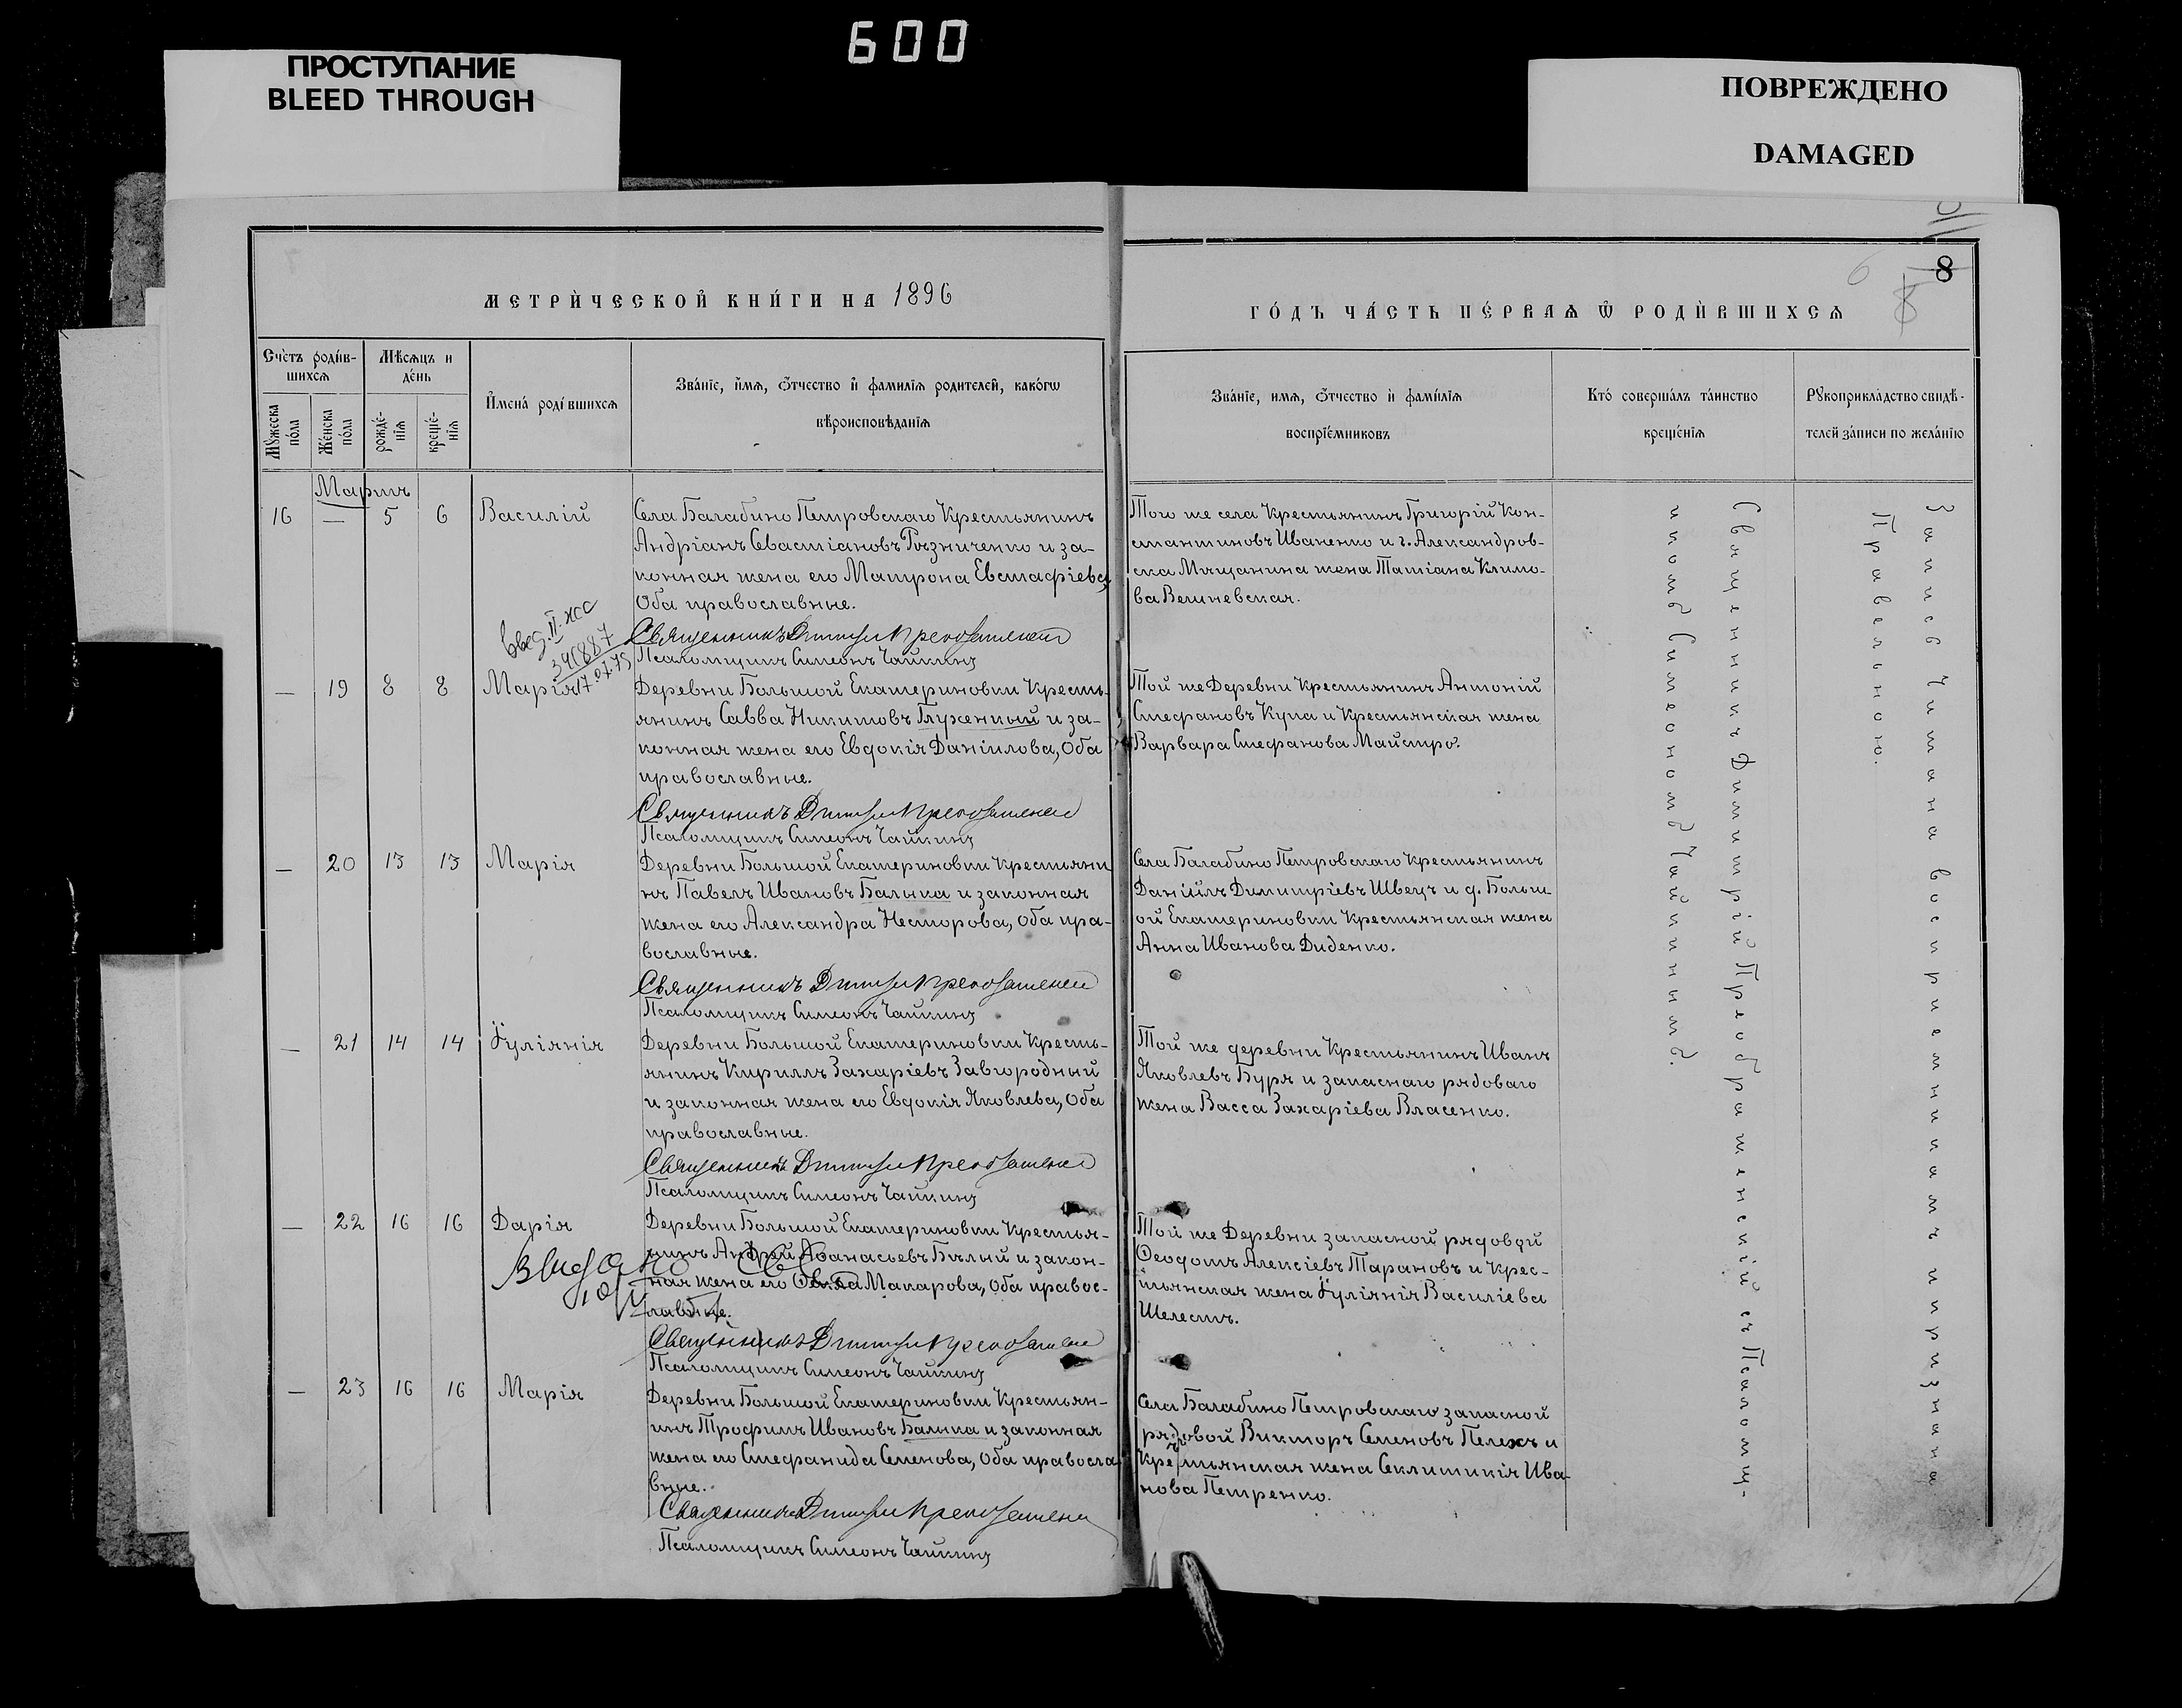 600
ПРОСТУПАНИЕ
BLEED THROUGH
ПОВРЕЖДЕНО
DAMAGED
8
МЕТРИ́ЧЕСКОЙ КНИ́ГИ НА 1896
ГО́ДЪ ЧА́СТЬ ПЕ́РВАѦ Ѿ РОДИ́ВШИХСѦ
Сче́тъ роди́в-
шихсѧ
Мѣсѧцъ и
де́нь
Мꙋ́жеска
по́ла
Же́нска
по́ла
рожде́-
нїѧ
креще́-
нїѧ
И҆мена́ роди́вшихсѧ
Зва́нїе, и҆́мѧ, ѻ҆́тчество и҆ фами́лїѧ роди́телей, како́гѡ
вѣроисповѣ́данїѧ
Зва́нїе, и́мѧ, ѻ҆́тчество и҆ фами́лїѧ
воспрїе́мниковъ
Кто́ соверша́лъ та́инство
креще́нїѧ
Рꙋкоприкла́дство свидѣ́-
телей за́писи по жела́нїю
Мартъ
16 — 5 6 Василій
Села Балабино Петровскаго Крестьянинъ
Андріанъ Севастіановъ Рѣзниченко и за-
конная жена его Матрона Евстафіева,
Оба православные.
Священникъ Димитрій Преображенскій
Псаломщикъ Симеонъ Чайкинъ
Того же села Крестьянинъ Григорій Кон-
стантиновъ Иваненко и г. Александров-
ска Мѣщанина жена Татіана Климо-
ва Вешневская.
340887
17.07.75
— 19 8 8 Марія
Деревни Большой Екатериновки Кресть-
янинъ Савва Никитовъ Глуженкый и за-
конная жена его Евдокія Даніилова, Оба
православные.
Священникъ Димитрій Преображенскій
Псаломщикъ Симеонъ Чайкинъ
Той же Деревни Крестьянинъ Антоній
Стефановъ Купа и Крестьянская жена
Варвара Стефанова Майстро.
— 20 13 13 Марія
Деревни Большой Екатериновки Крестьяни
нъ Павелъ Ивановъ Балыка и законная
жена его Александра Несторова, Оба пра-
вославные.
Священникъ Димитрій Преображенскій
Псаломщикъ Симеонъ Чайкинъ
Села Балабино Петровскаго Крестьянинъ
Даніилъ Димитріевъ Швецъ и д. Больш-
ой Екатериновки Крестьянская жена
Анна Иванова Диденко.
— 21 14 14 Їуліянія
Деревни Большой Екатериновки Кресть-
янинъ Кириллъ Захаріевъ Завгородный
и законная жена его Евдокія Яковлева, Оба
православные.
Священникъ Димитрій Преображенскій
Псаломщикъ Симеонъ Чайкинъ
Той же деревни Крестьянинъ Иванъ
Яковлевъ Буря и запаснаго рядоваго
жена Васса Захаріева Власенко.
— 22 16 16 Дарія
Деревни Большой Екатериновки Крестья-
нинъ Андрей Аѳанасьевъ Бѣлый и закон-
ная жена его Ѳекла Макарова, Оба правос-
лавные.
Священникъ Димитрій Преображенскій
Псаломщикъ Симеонъ Чайкинъ
Той же Деревни запасной рядовой
Ѳеодотъ Алексіевъ Тарановъ и Крес-
тьянская жена Їуліянія Василіева
Шелестъ.
— 23 16 16 Марія
Деревни Большой Екатериновки Крестьян-
инъ Трофимъ Ивановъ Балыка и законная
жена его Стефанида Семенова, Оба правосла
вные.
Священникъ Димитрій Преображенскій
Псаломщикъ Симеонъ Чайкинъ
Села Балабино Петровскаго запасной
рядовой Викторъ Семеновъ Пелехъ и
Крестьянская жена Секлитикія Ива-
нова Петренко.
Священникъ Димитрій Преображенскій съ Псаломщ-
икомъ Симеономъ Чайкинымъ.
Запись читана воспріемникамъ и признана
Правильною.